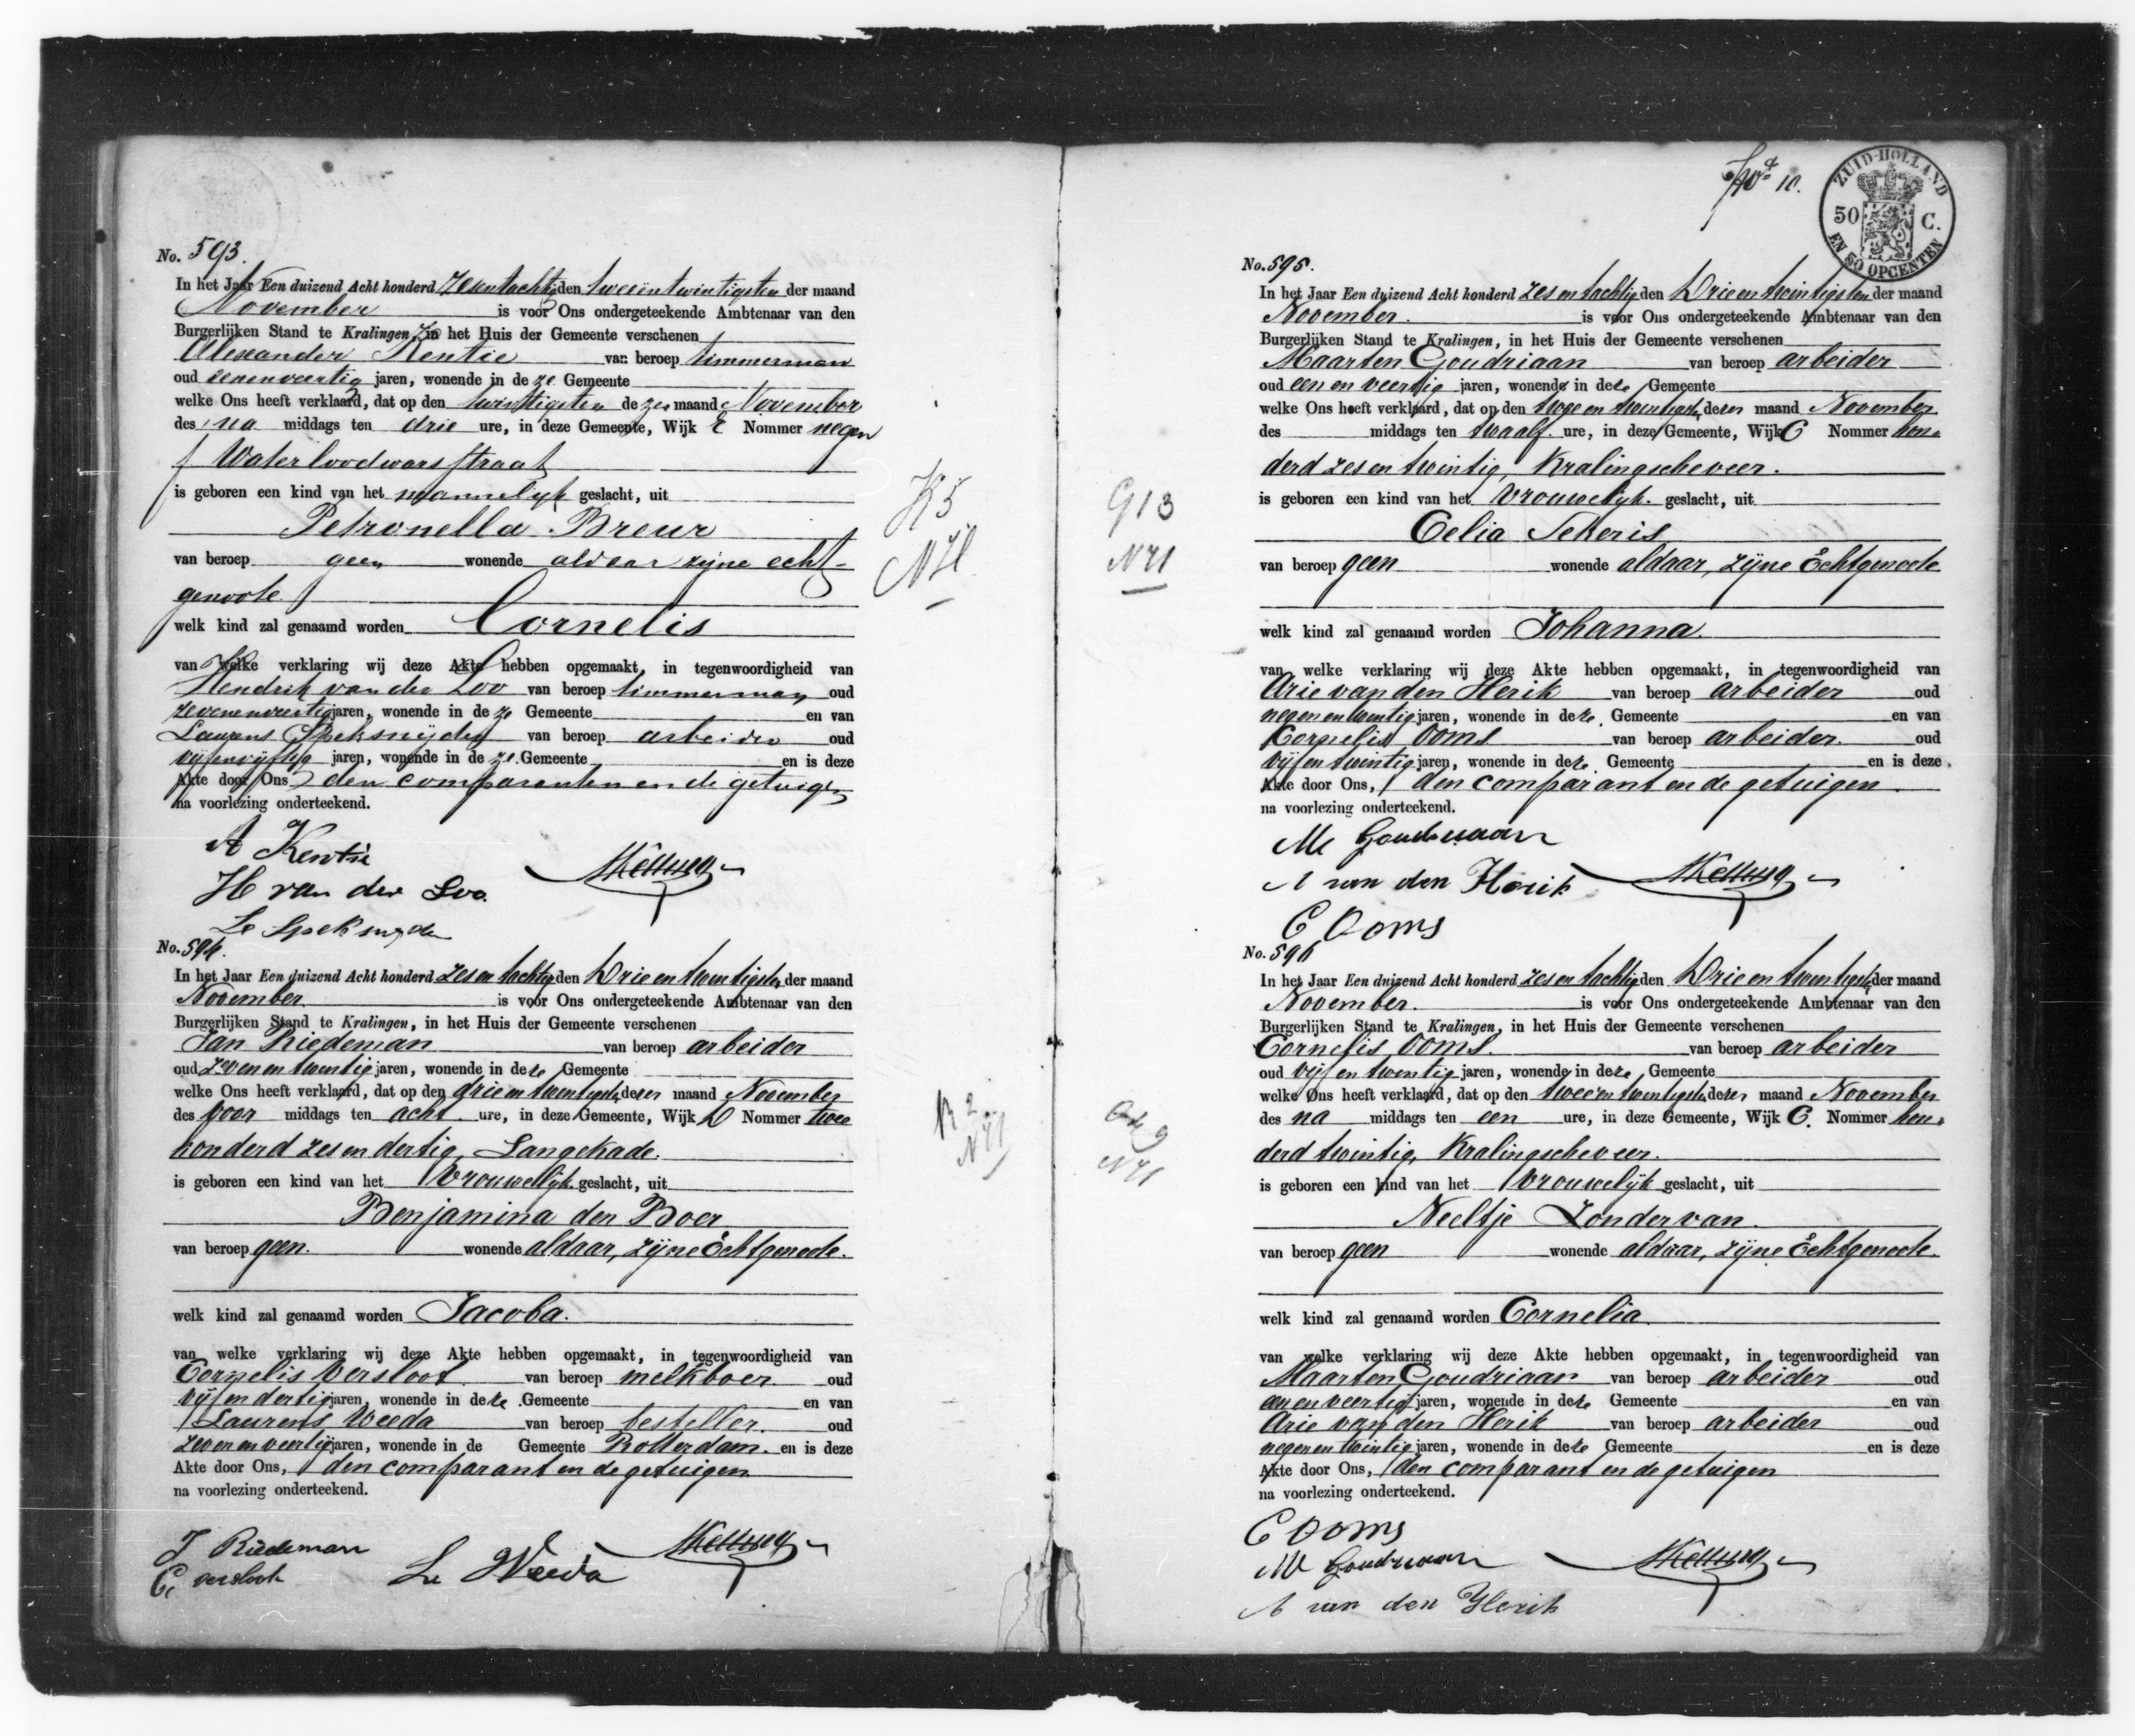 No. 593.
In het Jaar Een duizend Acht honderd zesentachtig den tweeëntwintigsten der maand
November is voor Ons ondergeteekende Ambtenaar van den
Burgerlijken Stand te Kralingen, in het Huis der Gemeente verschenen
Alexander Kentie van beroep timmerman
oud zevenenveertig jaren, wonende in de ze Gemeente
welke Ons heeft verklaard, dat op den twintigsten de zer maand November
des na middags ten drie ure, in deze Gemeente, Wijk E Nommer negen
Waterloodwarsstraat
is geboren een kind van het mannelijk geslacht, uit
Petronella Breur
van beroep geen wonende aldaar zijne echt-
genoote
welk kind zal genaamd worden Cornelis
van welke verklaring wij deze Akte hebben opgemaakt, in tegenwoordigheid van
Hendrik van der Loo van beroep timmerman oud
zevenenveertig jaren, wonende in de ze Gemeente en van
Laurens Speksnijder van beroep arbeider oud
vijfenvijftig jaren, wonende in de ze Gemeente en is deze
Akte door Ons, den comparanten en de getuigen
na voorlezing onderteekend.
A Kentie
H van der Loo
L Speksnyder
K5
N71
No. 594.
In het Jaar Een duizend Acht honderd zes en tachtig den Drie en twintigsten der maand
November is voor Ons ondergeteekende Ambtenaar van den
Burgerlijken Stand te Kralingen, in het Huis der Gemeente verschenen
Jan Riedeman van beroep arbeider
oud zeven en twintig jaren, wonende in deze Gemeente
welke Ons heeft verklaard, dat op den drie en twintigsten dezer maand November
des voor middags ten acht ure, in deze Gemeente, Wijk D Nommer twee
honderd zes en dertig, Langekade.
is geboren een kind van het Vrouwelijk geslacht, uit
Benjamina den Boer
van beroep geen. wonende aldaar, zijne Echtgenoote.
welk kind zal genaamd worden Jacoba.
van welke verklaring wij deze Akte hebben opgemaakt, in tegenwoordigheid van
Cornelis Versloot van beroep melkboer oud
vijf en dertig jaren, wonende in deze Gemeente en van
Laurens Weeda van beroep besteller. oud
zeven en veertig jaren, wonende in de Gemeente Rotterdam. en is deze
Akte door Ons, den comparant en de getuigen
na voorlezing onderteekend.
J Riedeman
C versloot
L Weeda
R2
N71
10.
ZUID-HOLLAND
50 C.
EN 50 OPCENTEN
No. 595.
In het Jaar Een duizend Acht honderd zes en tachtig den Drie en twintigsten der maand
November. is voor Ons ondergeteekende Ambtenaar van den
Burgerlijken Stand te Kralingen, in het Huis der Gemeente verschenen
Maarten Goudriaan van beroep arbeider
oud een en veertig jaren, wonende in deze Gemeente
welke Ons heeft verklaard, dat op den twee en twintigsten dezer maand November
des middags ten twaalf ure, in deze Gemeente, Wijk C Nommer hon-
derd zes en twintig, Kralingscheveer.
is geboren een kind van het Vrouwelijk geslacht, uit
Celia Sekeris
van beroep geen wonende aldaar, zijne Echtgenoote
welk kind zal genaamd worden Johanna.
van welke verklaring wij deze Akte hebben opgemaakt, in tegenwoordigheid van
Arie van den Herik van beroep arbeider oud
negen en twintig jaren, wonende in deze Gemeente en van
Cornelis Ooms van beroep arbeider. oud
vijf en twintig jaren, wonende in deze Gemeente en is deze
Akte door Ons, den comparant en de getuigen.
na voorlezing onderteekend.
M Goudriaan
A van den Herik
C Ooms
G13
N71
No. 596
In het Jaar Een duizend Acht honderd zes en tachtig den Drie en twintigsten der maand
November. is voor Ons ondergeteekende Ambtenaar van den
Burgerlijken Stand te Kralingen, in het Huis der Gemeente verschenen
Cornelis Ooms. van beroep arbeider
oud vijf en twintig jaren, wonende in deze Gemeente
welke Ons heeft verklaard, dat op den twee en twintigsten dezer maand November
des na middags ten een ure, in deze Gemeente, Wijk C. Nommer hon-
derd twintig, Kralingscheveer.
is geboren een kind van het Vrouwelijk geslacht, uit
Neeltje Zondervan.
van beroep geen wonende aldaar, zijne Echtgenoote.
welk kind zal genaamd worden Cornelia.
van welke verklaring wij deze Akte hebben opgemaakt, in tegenwoordigheid van
Maarten Goudriaan van beroep arbeider oud
een en veertig jaren, wonende in deze Gemeente en van
Arie van den Herik van beroep arbeider oud
negen en twintig jaren, wonende in deze Gemeente en is deze
Akte door Ons, den comparant en de getuigen
na voorlezing onderteekend.
C Ooms
M Goudriaan
A van den Herik
N71